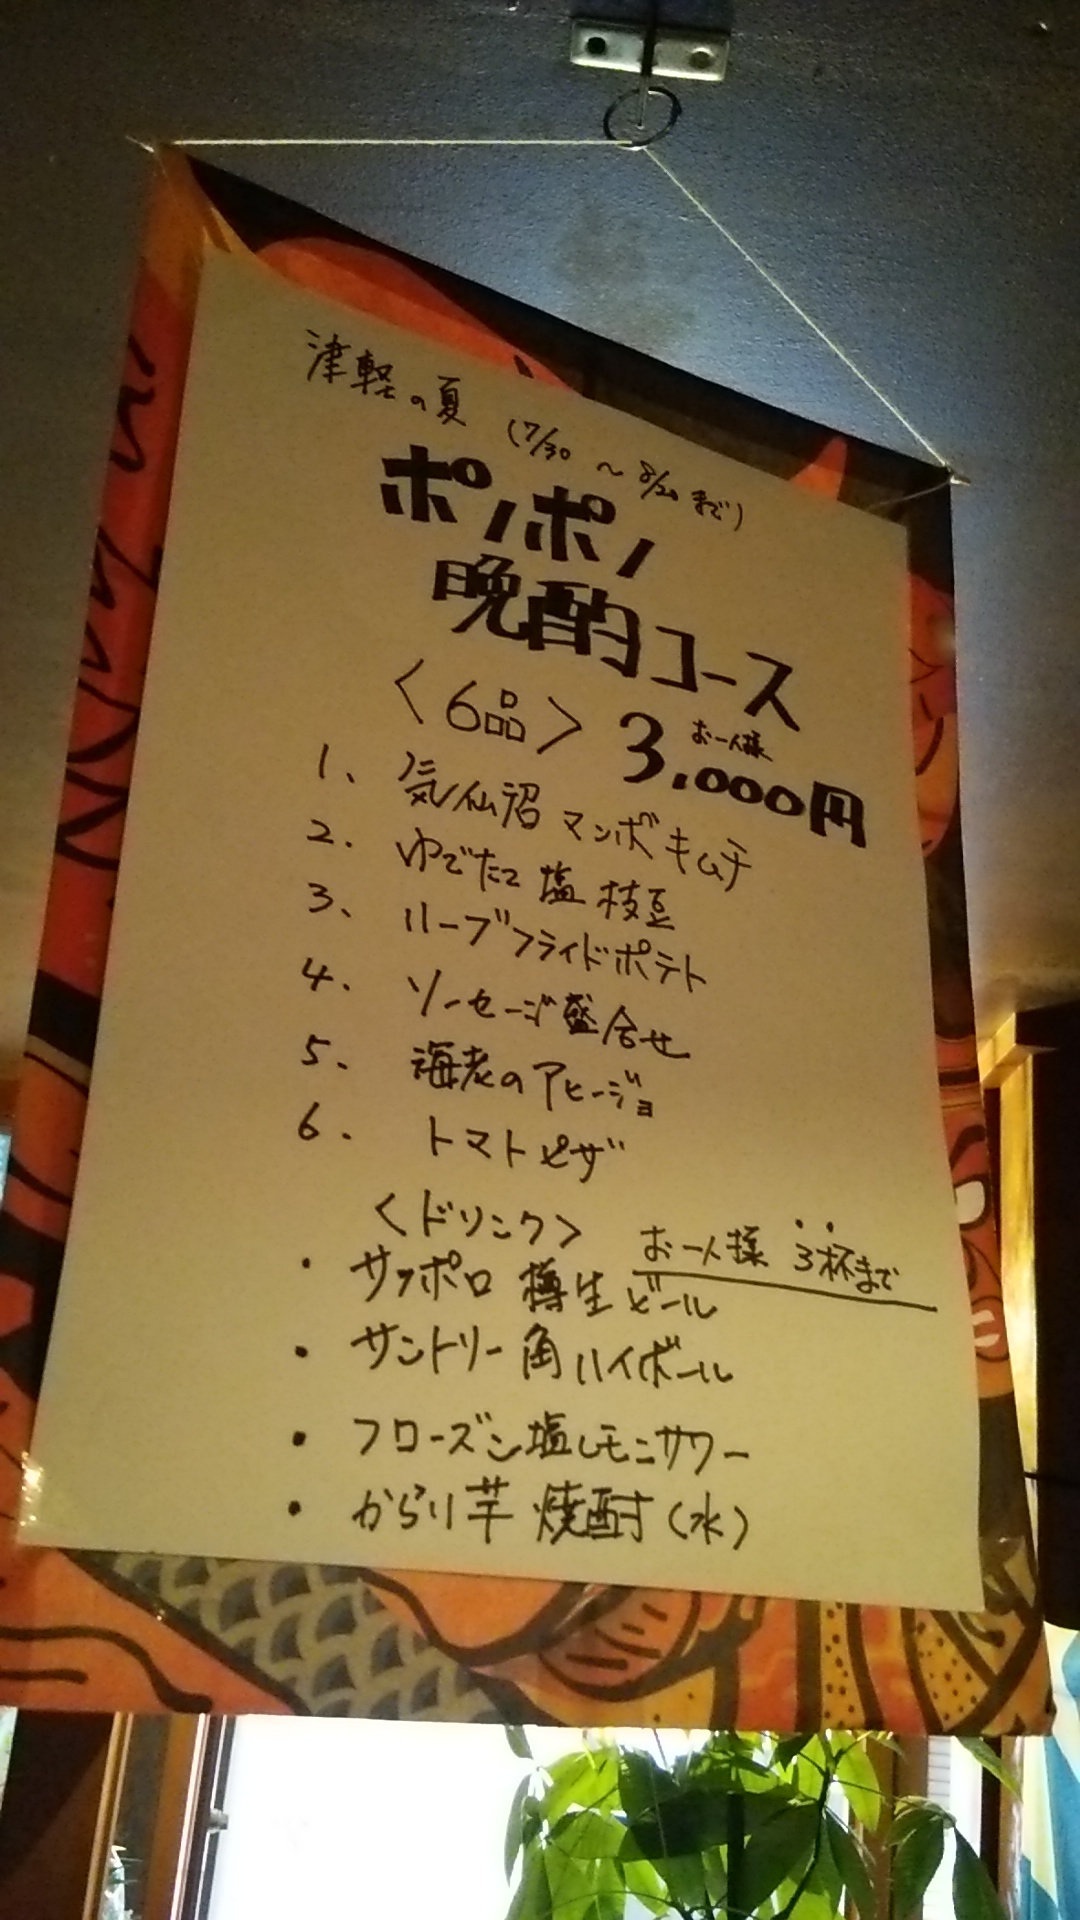 津軽の夏 (7/30 ~ 8/20 まで)
ポノポノ
晩酌コース
<6品> お一人様 3,000円
1、 気仙沼 マンボキムチ
2. ゆでたて 塩 枝豆
3、 ハーブフライドポテト
4. ソーセージ盛合せ
5. 海老のアヒージョ
6. トマトピザ
<ドリンク> お一人様 3杯まで
・ サッポロ 樽生ビール
・ サントリー角ハイボール
・ フローズン塩レモンサワー
・ からり芋 焼酎(水)